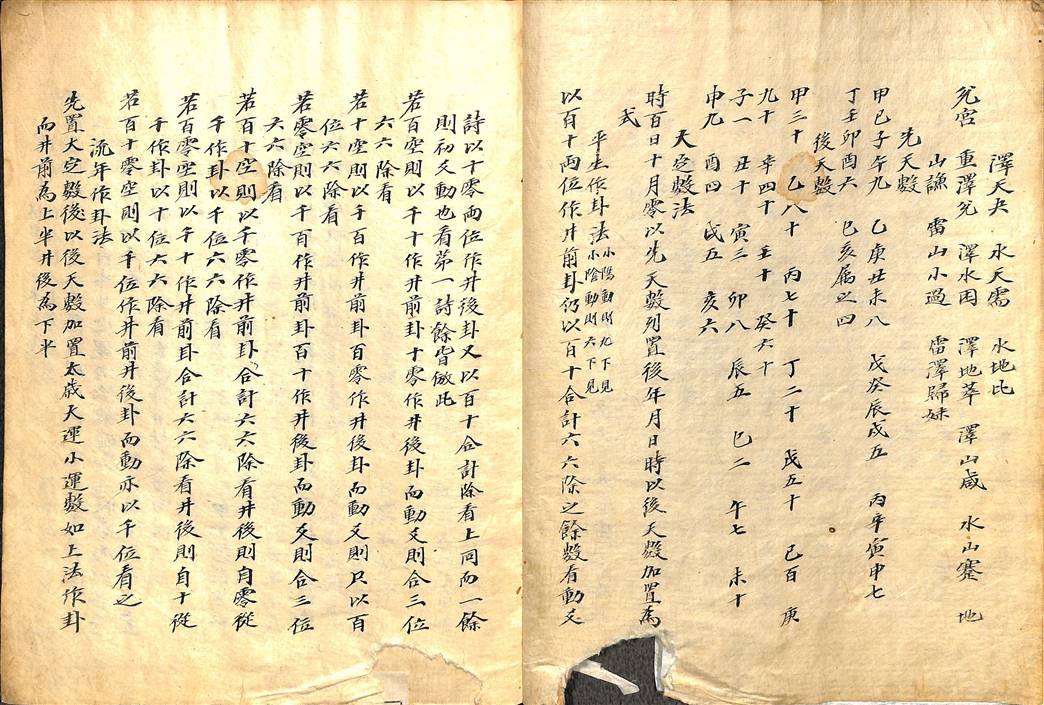 澤天夬 水天需 水地比
兌宮 重澤兌 澤水困 澤地萃 澤山咸 水山蹇 地
山謙 雷山小過 雷澤歸妹
先天數
甲己子午九 乙庚丑未八 戊癸辰戌五 丙辛寅申七
丁壬卯酉六 巳亥属之四
後天數
甲三十 乙八十 丙七十 丁二十 戊五十 己百 庚
九十 辛四十 壬十 癸六十
子一 丑十 寅三 卯八 辰五 巳二 午七 未十
申九 酉四 戌五 亥六
天定數法
時百日十月零以先天數列置後年月日時以後天數加置為
式
平生作卦法 小陽動則九下見 小陰動則六下見
以百十兩位作井前卦仍以百十合計六六除之餘數看動爻
詩以十零兩位作井後卦又以百十合計除看上同而一餘
則初爻動也看第一詩餘皆倣此
若百空則以千十作井前卦十零作井後卦而動爻則合三位
六六除看
若十空則以千百作井前卦百零作井後卦而動爻則只以百
位六六除看
若零空則以千百作井前卦百十作井後卦而動爻則合三位
六六除看
若百十空則以千零作井前卦合計六六除看井後則自零從
千作卦以千位六六除看
若百零空則以千十作井前卦合計六六除看井後則自十從
千作卦以十位六六除看
若百十零空則以千位作井前井後卦而動亦以千位看之
流年作卦法
先置大定數後以後天數加置太歲大運小運數如上法作卦
而井前為上半井後為下半